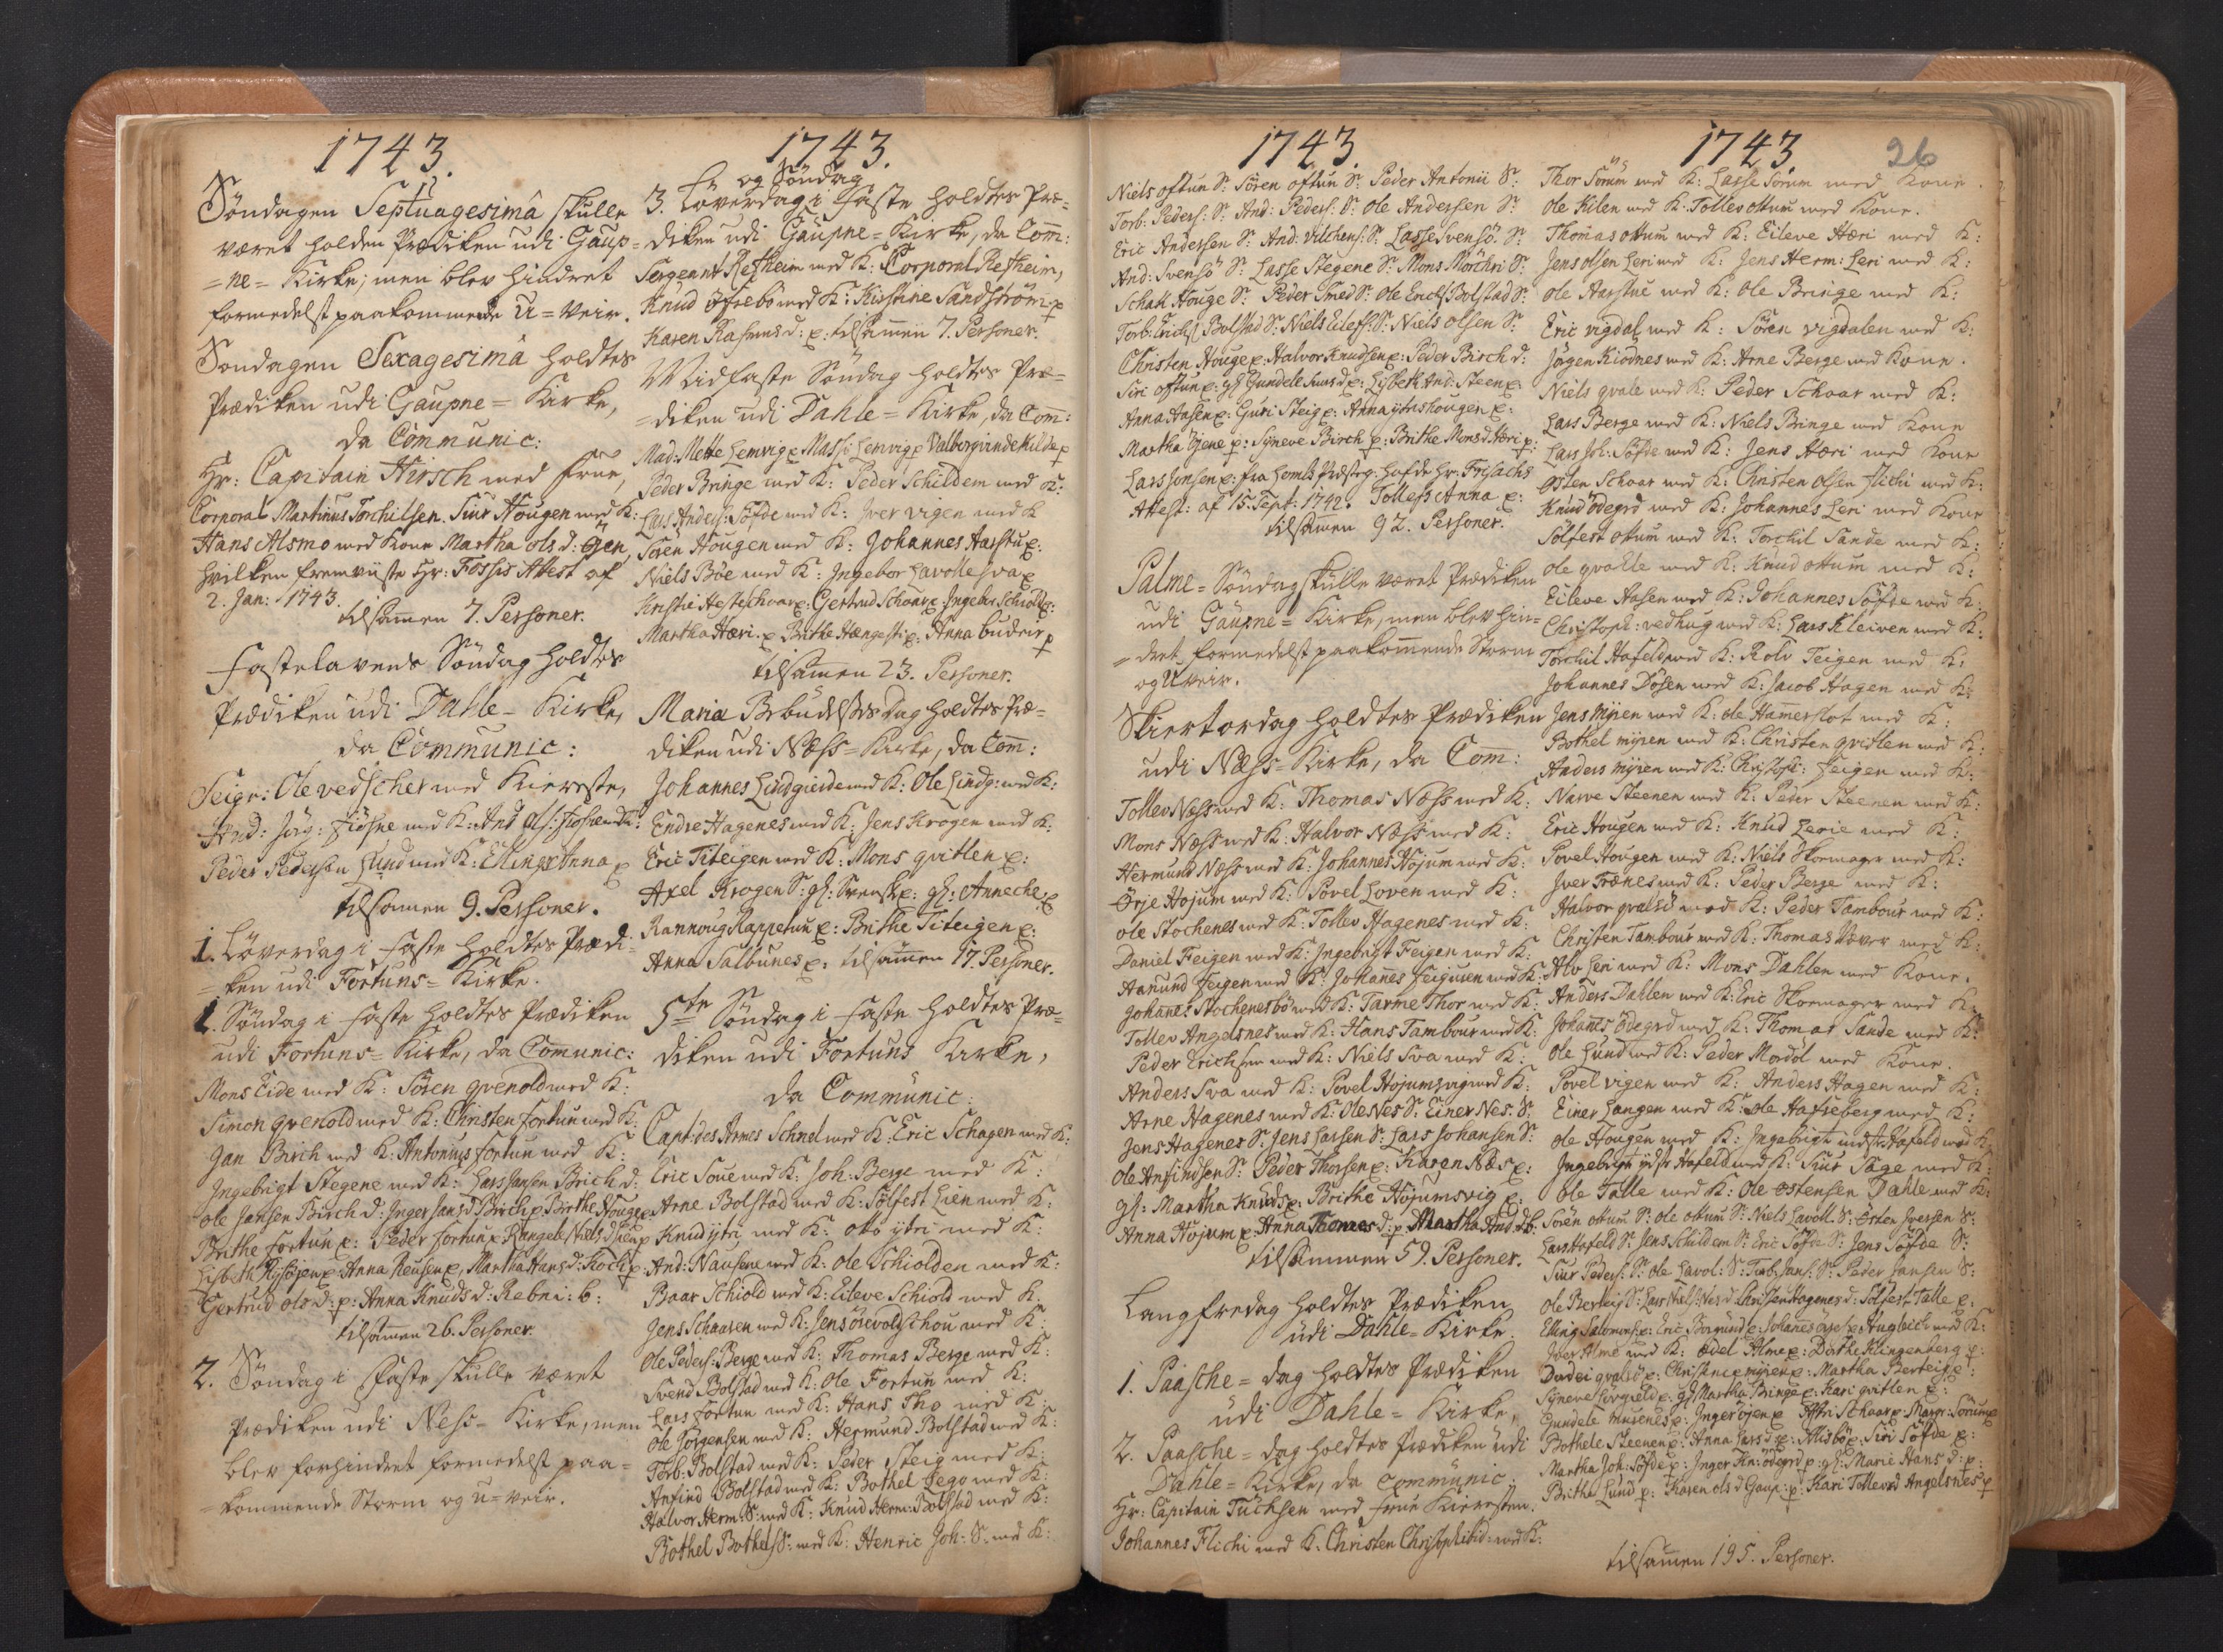 1743.
Söndagen Septuagesimâ skulle
været holden Prædiken udi Gaup-
=ne= Kirke, men blev hindret
formedelst paakommende U=Veir.
Sondagen Sexagesimâ holdtes
Prædiken udi Gaupne= Kirke,
da Communic:
Hr: Capitain Hirsch med Frue,
Corporal Martinus Torchilsen. Siur Hougen med K:
Hans Alsmo med Kone Martha ols d:
hvilken fremviiste Hr: Fosses Attest af
2. Jan: 1743.
tilsamen 7. Personer.
Fastelavens Söndag holdtes
Prædiken udi Dahle= Kirke,
da Communic:
Seigr: Ole vedscher med Kiereste,
And: Jörg: med K:
Peder Pedersen Lund med K:
tilsamen 9. Personer.
1. Löverdag i Faste holdtes Prædi-
=ken udi Fortuns= Kirke.
1. Söndag i Faste holdtes Prædiken
udi Fortuns= Kirke, da Comunic:
Mons Eide med K: Sören qvenold med K:
Simon qvenold med K: Christen Fortun med K:
Jan Birch med K: Antonius Fortun med K:
Ingebrigt Stegene med K: Lars Jansen Birch d:
Ole Jansen Birch d: Inger Jans d Birch p Birthe Houge p
Brithe Fortun p: Peder Fortun p Rangele Niels d
Lisbeth p: Anna p, Martha Hans d: p:
Gertrud ols d: p: Anna Knuds d: Rebni: b:
tilsamen 26. Personer.
2. Söndag i Faste skulle været
Prædiken udi Ness= Kirke, men
blev forhindret formedelst paa=
=kommende Storm og u=veir.
1743.
Lö og Söndag
3. Löverdag i Faste holdtes Præ=
diken udi Gaupne= Kirke, da Com:
Sergeant Restheim med K: Corporal Restheim,
Knud öfrebö med K: Kistine Sandström p
Karen Rasmus d: p: tilsamen 7. Personer.
Midfaste Söndag holdtes Præ=
=diken udi Dahle= Kirke, da Com:
Mad: Mette Lemvig p Massi Lemvig p Valborg p
Peder Bringe med K: Peder Schildem med K:
Lars Anders: Söfde med K: Iver vigen med K
Sören Hougen med K: Johannes Aastu p:
Niels Böe med K: Ingebor Lavolle Sva p
Kristie p: Gertrud Schoar p Ingebor Schiold p:
Martha Hæri p Brithe Hængesti p: Anna budeir p
tilsamen 23. Personer.
Mariæ Bebudelses Dag holdtes Præ=
diken udi Næss= Kirke, da Com:
Johannes Lindgierde med K: Ole Lindg: med K:
Endre Hagenes med K: Jens Krogen med K:
Eric Titeigen med K: Mons qvitlen p:
Axel Krogen S: gl: Svensk p: gl: Anneche p
Rannoug Rappetun p: Brithe Titeigen p:
Anna Salbunes p: tilsamen 17. Personer.
5te Söndag i Faste holdtes Præ=
diken udi Fortuns Kirke,
da Communic:
Capt: des Armes Schnel med K: Eric Schagen med K:
Eric Soue med K: Joh: Berge med K:
Arne Bolstad med K: Sölfest Lien med K:
Knud ytri med K: otto ytri med K:
And: Nausene med K: Ole Schiolden med K:
Baar Schiold med K: Eileve Schiold med K.
Jens Schaaren med K: Jens med K:
Ole Peders: Berge med K: Thomas Berge med K:
Svend Bolstad med K: Ole Fortun med K:
Lars Fortun med K: Hans Tho med K:
Ole Jörgensen med K: Hermund Bolstad med K:
Torb: Bolstad med K: Peder Steig med K:
Anfind Bolstad med K: Bothel Lego med K:
Halvor Herm: S: med K: Knud Herm: Bolstad med K:
Bothel Bothels S: med K: Henric Joh: S: med K:
1743.
Niels oftun S: Sören oftun S: Peder Antonii S:
Torb: Peders: S: And: Peders: S: Ole Andersen S:
Eric Andersen S: And: Vilchens: S: Lasse Svensö. S:
And: Svensö S: Lasse Stegene S: Mons Mörchri S:
Schak Houge S: Peder Smed S: Ole Erichs Bolstad S:
Torb: Erichs Bolstad S: Niels Eilefs: S: Niels olsen S:
Christen Houge p: Halvor Knudsen p: Peder Birch d:
Siri oftun p: gl Gundele d p: Lisbeth And: Steen p:
Anna Aasen p: Guri Steig p: Anna ytreshougen p:
Martha Öyene p: Syneve Birch p: Brithe Monsd Hæri p:
Lars Jonsen p: fra Præsteg: hafde Hr: Frisachs
Attest: af 15. Sept: 1742. Tollefs Anna p:
tilsamen 92. Personer.
Palme= Söndag skulle været Prædiken
udi Gaupne= Kirke, men blev hin=
=dret formedelst paakommende Storm
og Uveir.
Skiertordag holdtes Prædiken
udi Næss= Kirke, da Com:
Tollev Næss med K: Thomas Næss med K:
Mons Næss med K: Halvor Næss med K:
Hermund Næss med K: Johannes Höjum med K:
Örje Höjum med K: Povel Hoven med K:
ole Stochenes med K: Tollev Hagenes med K:
Daniel Feigen med K: Ingebrigt Feigen med K:
Aamund Feigen med K: Johanes Feiguien med K:
Johanes Stochenesbö med K: Tarme Thor med K:
Tollev Angelsnes med K: Hans Tambour med K:
Peder Erichsen med K: Niels Sva med K:
Anders Sva med K: Povel Höjumsvig med K:
Arne Hagenes med K: Ole Nes S: Einer Nes. S:
Jens Hagenes S: Jens Larsen S: Lars Johansen S:
Ole Anfindsen S: Peder Thorsen p: Karen Næs p:
gl: Martha Knuds p: Brithe Höjumsvig p:
Anna Höjum p: Anna Thomes d: p Martha And: d b.
tilsammen 59. Personer.
Langfredag holdtes Prædiken
udi Dahle= Kirke.
1. Paasche= dag holdtes Prædiken
udi Dahle= Kirke,
2. Paasche= dag holdtes Prædiken udi
Dahle= Kirke, da Communic:
Hr: Capitain Tuchsen med Frue Kieresten.
Johannes Flichi med K: Christen Christoph: ibid: med K:
1743. 26
Thor Sörum med K: Lasse Sörum med Kone.
Ole Kilen med K: Tollev ottum med Kone.
Thomas ottum med K: Eileve Hæri med K:
Jens olsen Leri med K: Jens Herm: Leri med K:
Ole Aarstue med K: Ole Bringe med K:
Eric vigdal med K: Sören vigdalen med K:
Jörgen Kiodnes med K: Arne Berge med Kone.
Niels qvale med K: Peder Schaar med K:
Lars Berge med K: Niels Bringe med Kone
Lars Jol: Söfde med K: Jens Hæri med Kone
Østen Schaar med K: Christen olsen Flichi med K:
Knud ödegrd med K: Johannes Leri med Kone
Solfest ottum med K: Torchil Sande med K:
Ole qvalle med K: Knud ottum med K:
Eileve Aasen med K: Johannes Söfde med K:
Christoph: vedhug med K: Lars Kleiven med K:
Torchil Hafeld med K: Rolv Teigen med K:
Johannes Dösen med K: Jacob Hagen med K:
Jens Myren med K: Ole Hamerslot med K:
Bothel myren med K: Christen qvitlen med K:
Anders myren med K: Christoph: Feigen med K:
Narve Steenen med K: Peder Steenen med K:
Eric Hougen med K: Knud Lerie med K:
Povel Hougen med K: Niels Skomager med K:
Iver Frænes med K: Peder Berge med K:
Halvor qvalsö med K: Peder Tambour med K:
Christen Tambour med K: Thomas Væver med K:
Alv Leri med K: Mons Dahlen med Kone.
Anders Dahlen med K: Eric Skomager med K:
Johanes ödegrd med K: Thomas Sande med K:
Ole Lund med K: Peder Mordöl med Kone.
Povel vigen med K: Anders Hagen med K:
Einer Hangen med K: Ole Hafseberg med K:
Ole Hougen med K: Ingebrigt Hafeld med K
Ingebrigt ydste Hafeld med K: Siur Tage med K:
Ole Talle med K: Ole Østensen Dahle med K:
Sören ottum S: Ole ottum S: Niels Lavoll. S: Østen Iversen S:
Lars Hafeld S: Jens Schildem S: Eric Söfde S: Jens Söfde S:
Siur Peders: S: Ole Lavol: S: Torb: Jans: S: Peder Jansen S:
Ole Berteig S: Lars Niels: Nes d Christen Hagenes d: Sölfest Talle p:
Elling Salomons p: Eric Borgund p: Johanes p: med K:
Iver Alme med K: Ædel Alme p: Dorthe Klingenberg p:
Dordei qvalsö p: Christence myren p: Martha Berteig p:
Syneve p: gl Martha Bringe p: Kari qvitlen p:
Gundele Musenes p: Inger öjen p Astri Schaar p: Margr: Sörum p
Bothele Steenen p: Anna Lars d p: Allisbö p: Siri Söfde p:
Martha Joh: Söfde p: Inger Kn: ödegrd p: gl: Marie Hans d: p:
Brithe Lund p: Karen ols d Gaup: p: Kari Tollevsd Angelsnes p
tilsamen 195. Personer.